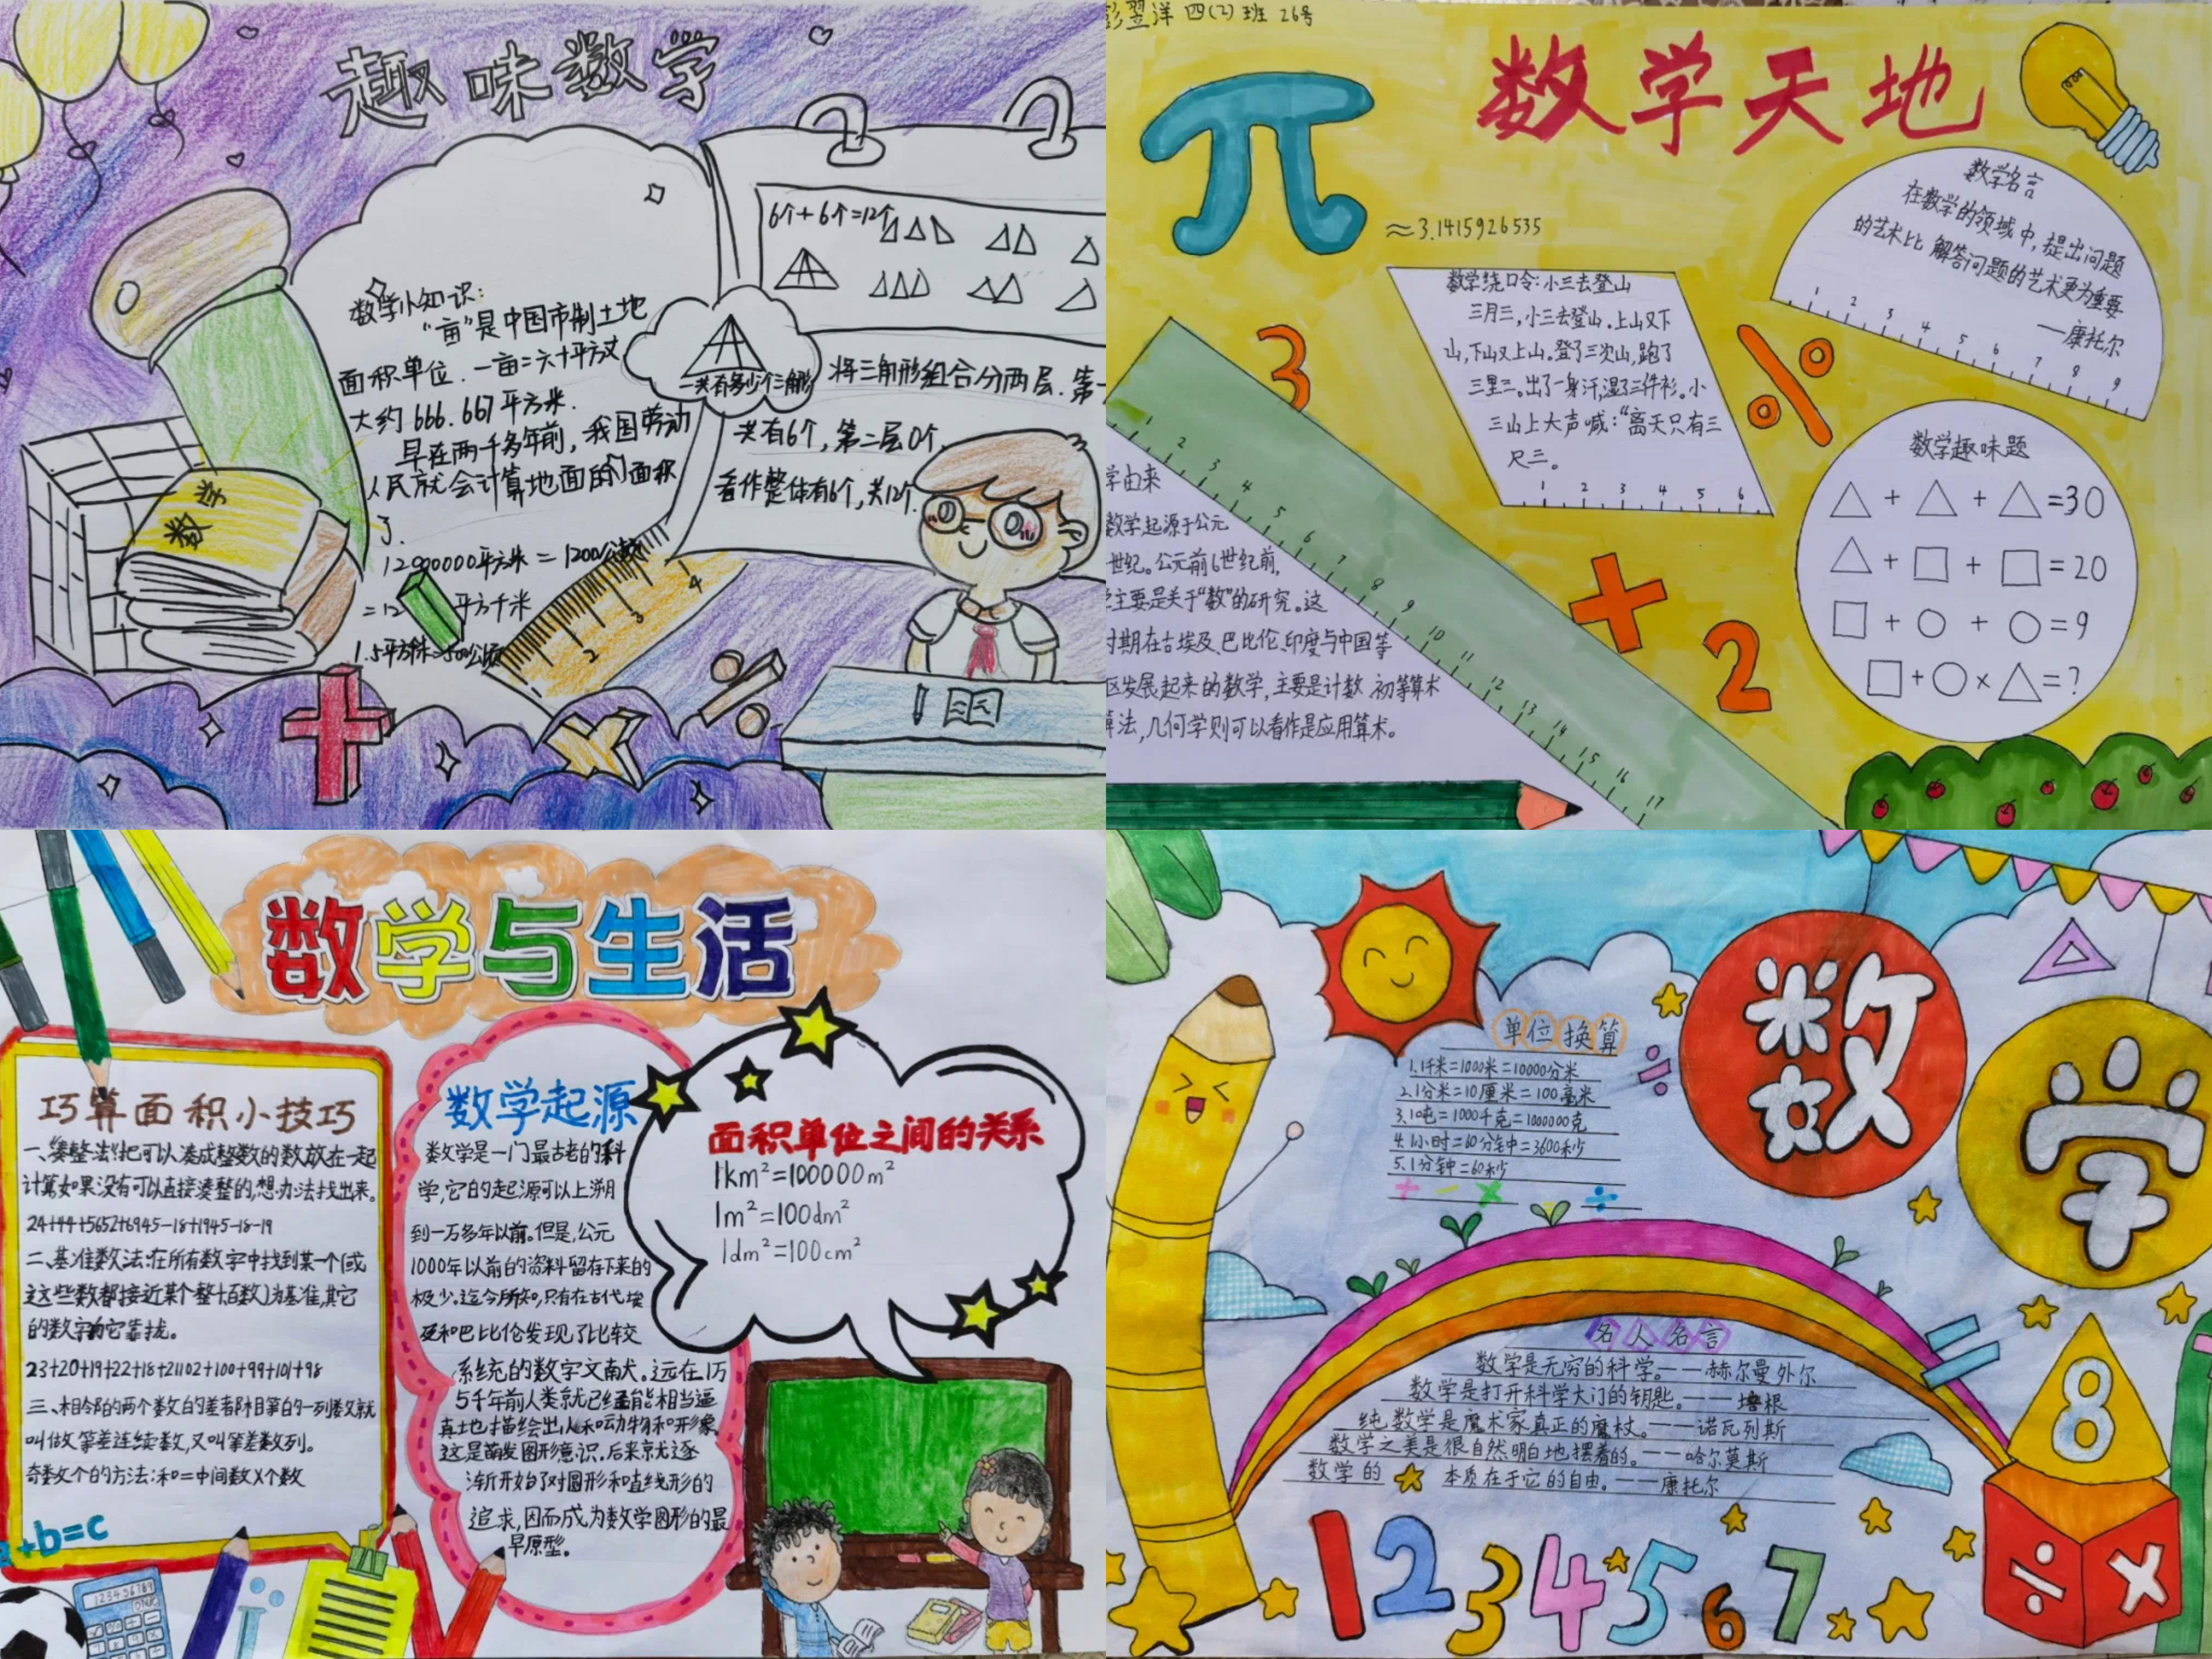 趣味数学
数学小知识：
“亩”是中国市制土地
面积单位．一亩=六十平方丈
大约 666.667平方米．
早在两千多年前，我国劳动
人民就会计算地面的面积
了．
12000000平方米 = 1200公顷
= 12 平方千米
数学
6个+6个=12个
一共有多少个三角形
将三角形组合分两层．第一
共有6个，第二层0个．
看作整体有6个，共12个．
1 2 3 4
彭翌洋 四(2)班 26号
数学天地
π
≈3.1415926535
数学名言
在数学的领域中，提出问题
的艺术比 解答问题的艺术更为重要
——康托尔
1 2 3 4 5 6 7 8 9
数学绕口令：小三去登山
三月三，小三去登山．上山又下
山，下山又上山。登了三次山，跑了
三里三。出了一身汗，湿了三件衫。小
三山上大声喊：“离天只有三
尺三。
1 2 3 4 5 6
3
%
+
2
数学趣味题
△+△+△=30
△+□+□=20
□+○+○=9
□+○×△=?
学由来
数学起源于公元
世纪。公元前6世纪前，
主要是关于“数”的研究。这
时期在古埃及、巴比伦、印度与中国等
区发展起来的数学，主要是计数 初等算术
算法，几何学则可以看作是应用算术。
1 2 3 4 5 6 7 8 9 10 11 12 13 14 15 16 17
数学与生活
巧算面积小技巧
一、“凑整法”把可以凑成整数的数放在一起
计算如果没有可以直接凑整的，想办法找出来。
24+44+5652+6945-18+1945-18-19
二、基准数法：在所有数字中找到某一个（或
这些数都接近某个整十百数）为基准，其它
的数字向它靠拢。
23+20+19+22+18+21102+100+99+101+98
三、相邻的两个数的差都相等的一列数就
叫做等差连续数，又叫等差数列。
奇数个的方法：和=中间数×个数
+b=c
数学起源
数学是一门最古老的科
学，它的起源可以上溯
到一万多年以前。但是，公元
1000年以前的资料留存下来的
极少。迄今所知，只有在古代埃
及和巴比伦发现了比较
系统的数字文献。远在1万
5千年前人类就已经能相当逼
真地描绘出人和动物和形象
这是萌发图形意识。后来就逐
渐开始了对圆形和直线形的
追求，因而成为数学图形的最
早原型。
面积单位之间的关系
1km²=100000m²
1m²=100dm²
1dm²=100cm²
数学
单位换算
1.1千米=1000米=10000分米
2.1分米=10厘米=100毫米
3.1吨=1000千克=1000000克
4.1小时=60分钟=3600秒
5.1分钟=60秒
名人名言
数学是无穷的科学。——赫尔曼外尔
数学是打开科学大门的钥匙。——培根
纯数学是魔术家真正的魔杖。——诺瓦列斯
数学之美是很自然明白地摆着的。——哈尔莫斯
数学的 本质在于它的自由。——康托尔
1 2 3 4 5 6 7
8
÷ ×